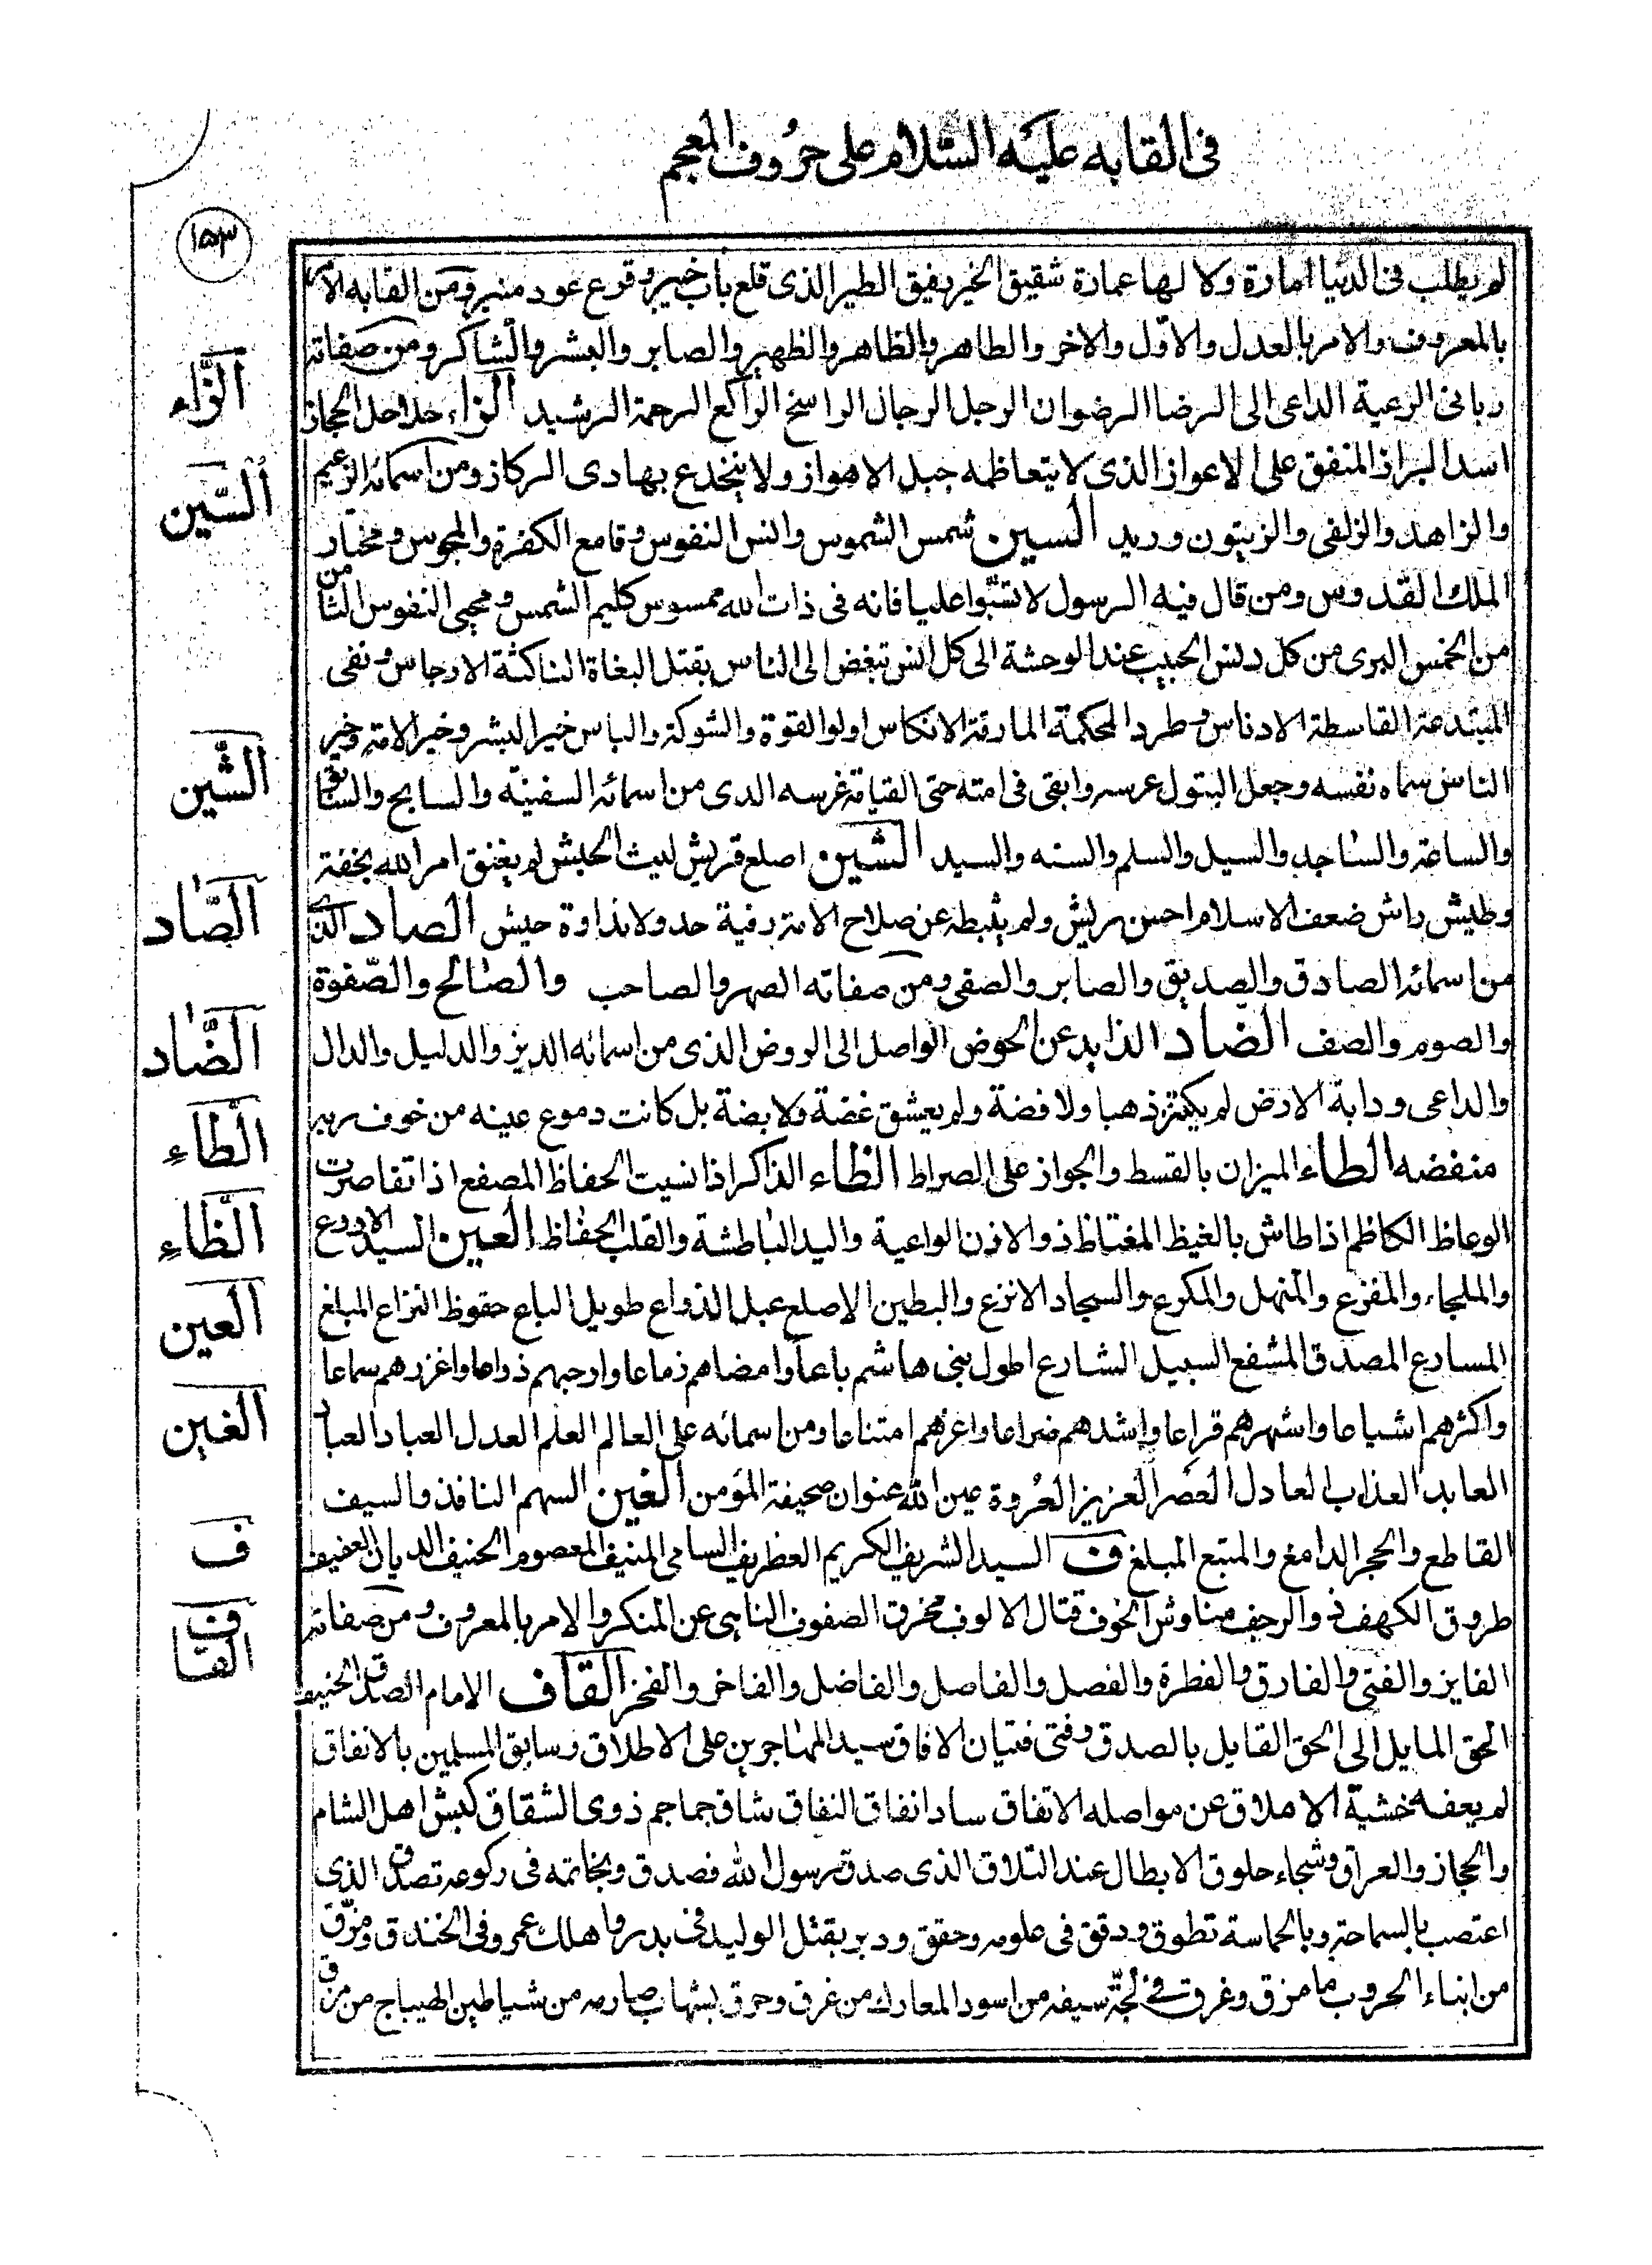 في القابه عليه السلام على حروف المعجم
١٥٣
لم يطلب فى الدنيا امارة ولا لها عمارة شقيق الخير رفيق الطير الذى قلع باب خيبر وقرع عود منبر ومن القابه الامر
بالمعروف والامر بالعدل والاول والاخر والطاهر والظاهر والظهير والصابر والبشر والشاكر ومن صفاته
ربانى الرعية الداعى الى الرضا الرضوان الرجل الرجال الراسخ الراكع الرحمة الرشيد الزاء حلاحل الحجاز
اسد البراز المنفق على الاعواز الذى لا يتعاظمه جبل الاهواز ولا ينخدع بهادى الركاز ومن اسمائه الزعيم
والزاهد والزلفى والزيتون وزيد السين شمس الشموس وانس النفوس وقامع الكفرة والمجوس ومختار
الملك القدوس ومن قال فيه الرسول لا تسبّوا عليا فانه فى ذات الله ممسوس كليم الشمس ومحيى النفوس الثامن
من الخمس البرى من كل دنس الحبيب عند الوحشة الى كل انس تبغض الى الناس بقتل البغاة الناكثة الارجاس ونفى
المبتدعة القاسطة الادناس وطرد المحكمة المارقة الانكاس اولو القوة والشوكة والباس خير البشر وخير الامة وخير
الناس سماه نفسه وجعل البتول عرسه وابقى فى امته حتى القيامة غرسه الذى من اسمائه السفينة والسابح والسابق
والساعة والساجد والسيل والسلم والسنه والسيد الشين اصلع قريش ليث الجيش لم يعنق امر الله بخفة
وطيش راش ضعف الاسلام احسن ريش ولم يثبطه عن صلاح الامة رفية حد ولا نداوة حيش الصاد الذى
من اسمائه الصادق والصديق والصابر والصفى ومن صفاته الصهر والصاحب والصالح والصّفوة
والصوم والصف الضاد الذايد عن الحوض الواصل الى الروض الذى من اسمائه الدين والدليل والدال
والداعى ودابة الارض لم يكنز ذهبا ولا فضة ولم يعشق غضة ولا بضة بل كانت دموع عينه من خوف ربه
منفضه الطاء الميزان بالقسط والجواز على الصراط الظاء الذاكر اذا نسيت الحفاظ المصقع اذا تقاصرت
الوعاظ الكاظم اذا طاش بالغيظ المغتاظ ذو الاذن الواعية واليد الباطشة والقلب الحفاظ العين السيد الاورع
والملجاء والمفزع والمنهل والمكرع والسجاد الانزع والبطين الاصلع عبل الذراع طويل الباع حفوظ النزاع المبلغ
المسارع المصدق المشفع السبيل الشارع اطول بنى هاشم باعا وامضاهم زماعا وارحبهم ذراعا واغزرهم سماعا
واكثرهم اشياعا واشهرهم قراعا واشدهم ضراعا واعزهم امتناعا ومن اسمائه على العالم العلم العدل العباد العباد
العابد العذاب العادل العصر العزيز العروة عين الله عنوان صحيفة المؤمن الغين السهم النافذ والسيف
القاطع والحجر الدامغ والمتبع المبلغ ف السيد الشريف الكريم الغطريف السامى المنيف المعصوم الحنيف الديان العفيف
طروق الكهف فى والرجف مناوش الخوف قتال الالوف مخرق الصفوف الناهى عن المنكر والامر بالمعروف ومن صفاته
الفايز والفتى والفارق والفطرة والفصل والفاصل والفاضل والفاخر والفخر القاف الامام الصدق الحنيف
الحق المايل الى الحق القايل بالصدق وفتى فتيان الافاق سيد المهاجرين على الاطلاق وسابق المسلمين بالاتفاق
لم يعفه خشية الاملاق عن مواصله الانفاق ساد انفاق النفاق شاق جماجم ذوى الشقاق كبش اهل الشام
والحجاز والعراق وشجاء حلوق الابطال عند التلاق الذى صدق رسول الله فصدق وبخاتمه فى ركوعه تصدق الذى
اعتصب بالسماحة وبالحماسة تطوق ودقق فى علومه وحقق ودبر بقتل الوليد فى بدر واهلك عمرو فى الخندق ومزّق
من ابناء الحروب ما مزق وغرق فى لجّة سيفه من اسود المعارك من غرق وحرق بشهاب صارمه من شياطين الهياج من مرق
الزّاء
السّين
الشّين
الصّاد
الضّاد
الطّاء
الظّاء
العين
الغين
ف
ف
القاف